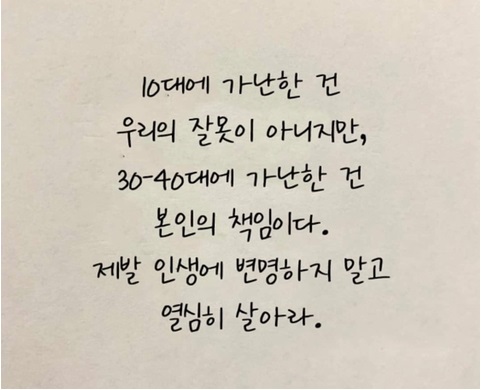 10대에 가난한 건
우리의 잘못이 아니지만,
30-40대에 가난한 건
본인의 책임이다.
제발 인생에 변명하지 말고
열심히 살아라.